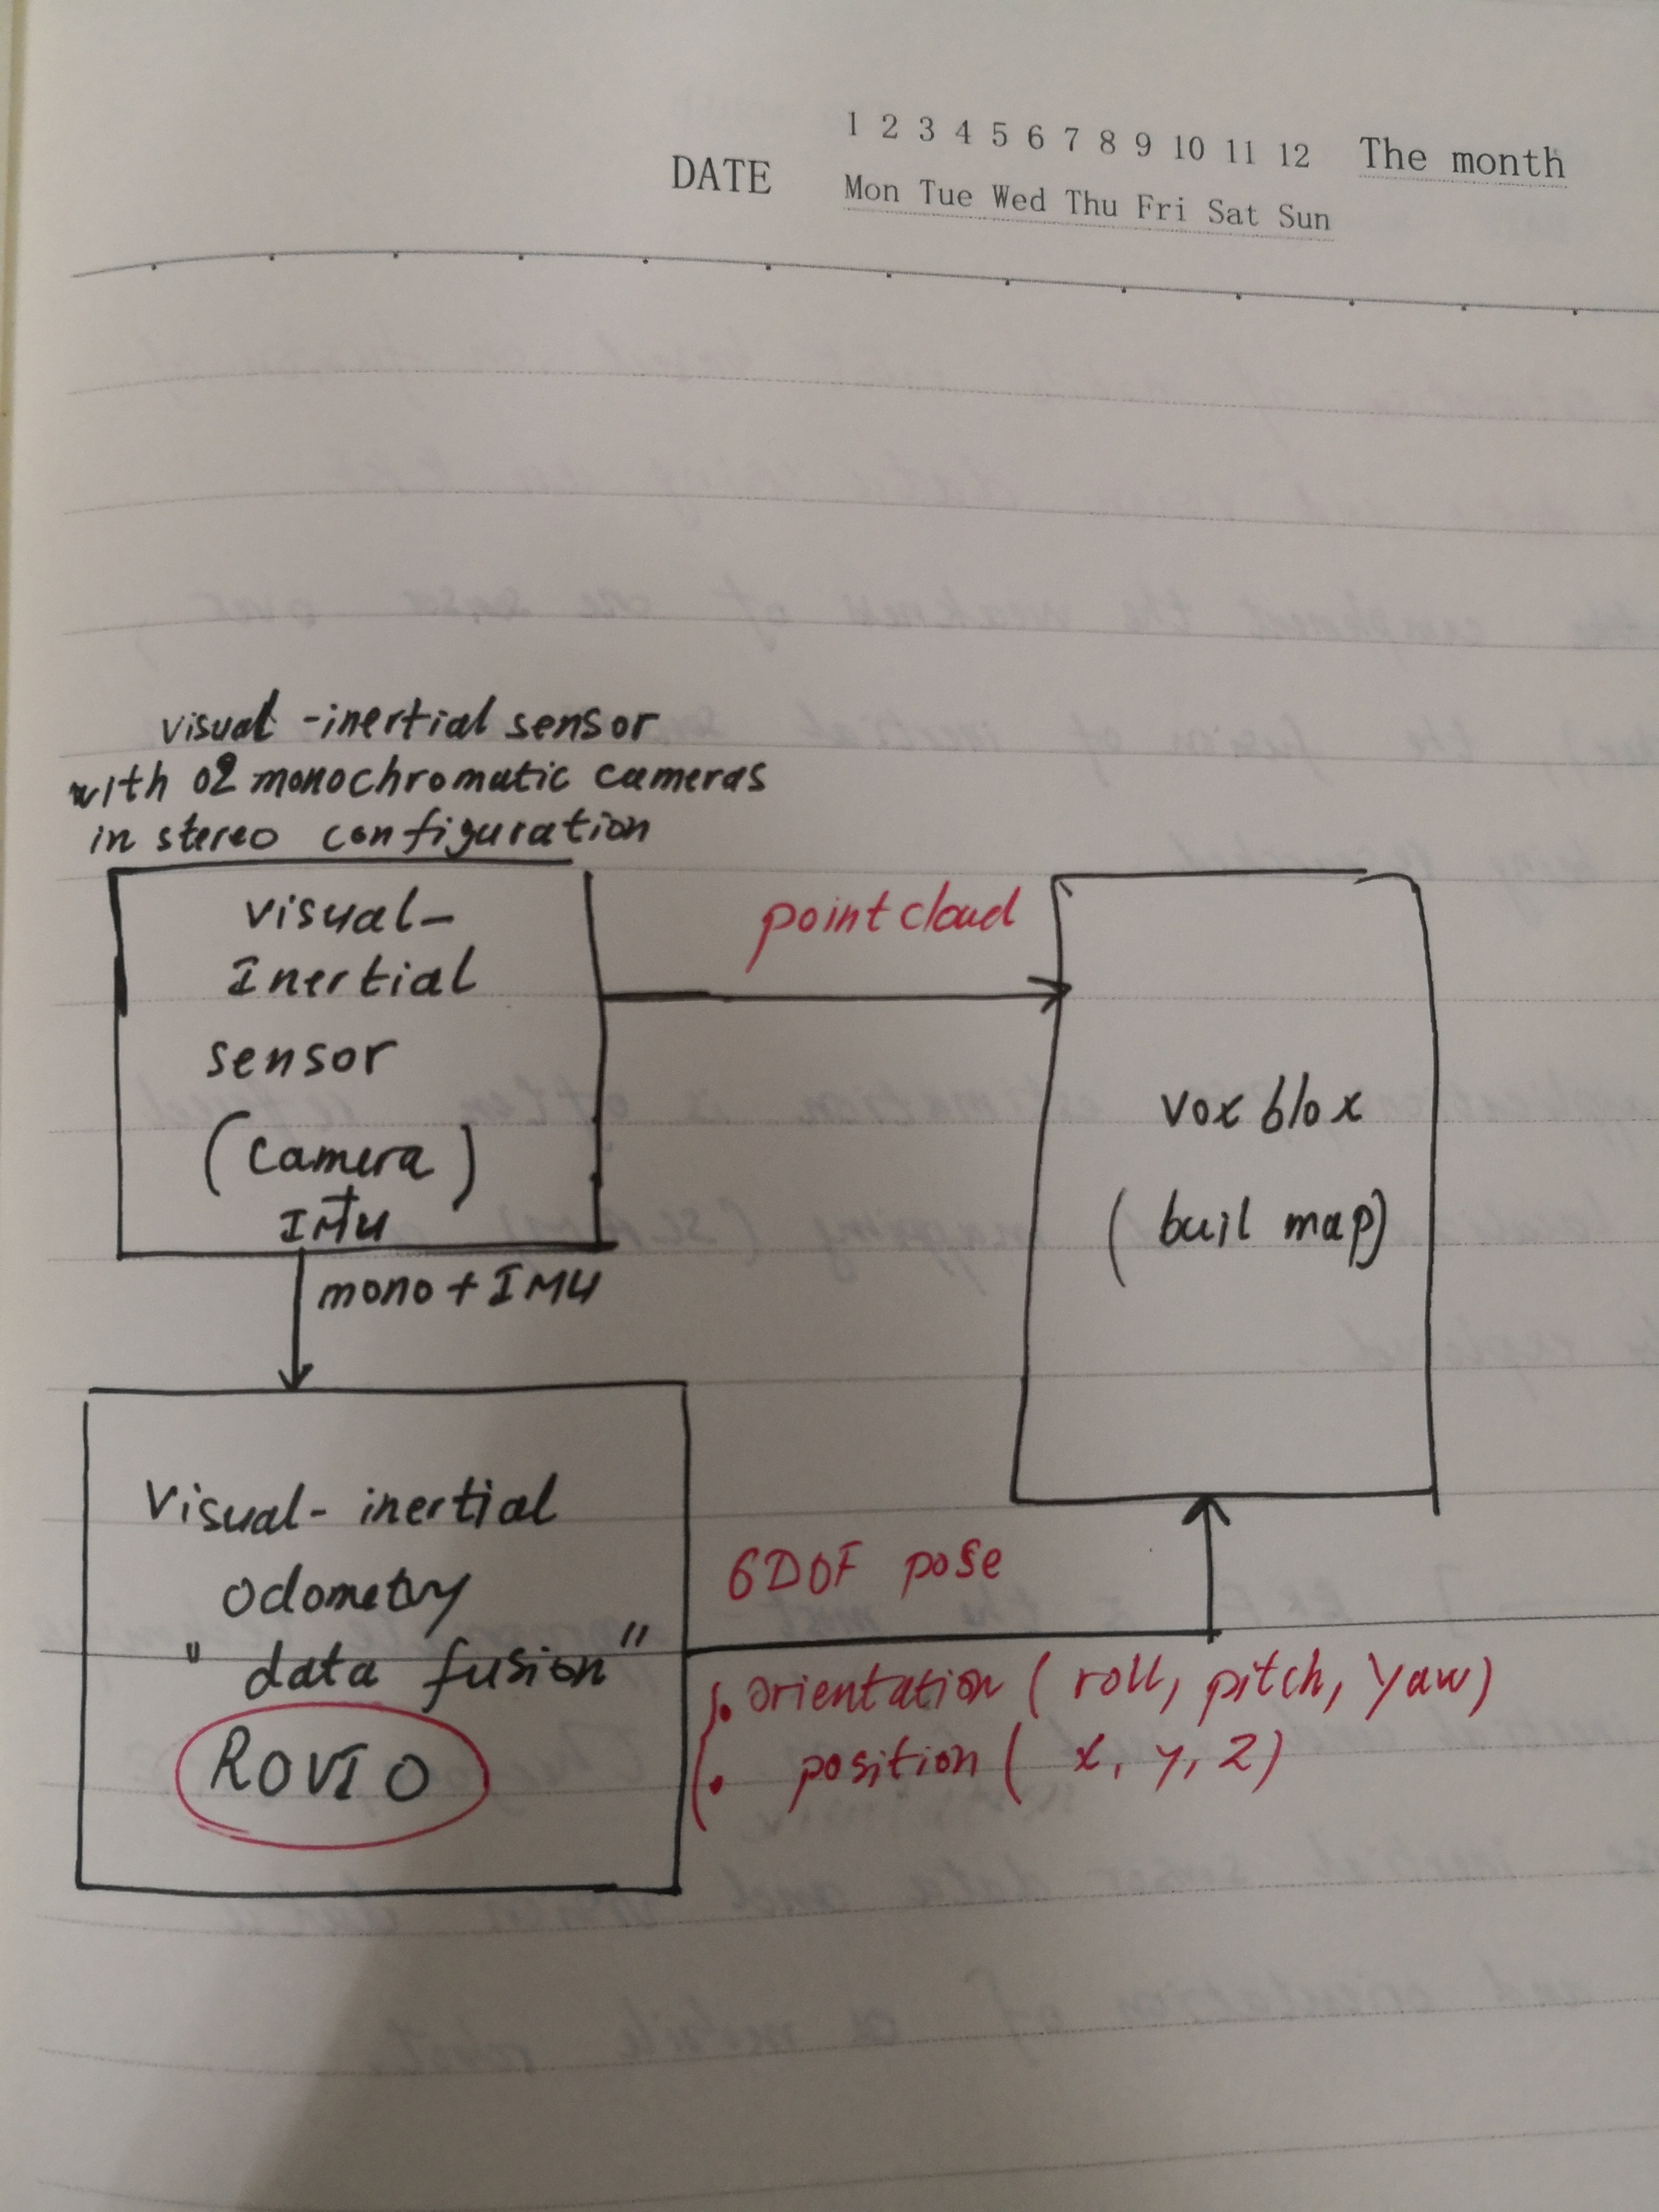 1 2 3 4 5 6 7 8 9 10 11 12 The month
DATE
Mon Tue Wed Thu Fri Sat Sun
visual-inertial sensor
with 02 monochromatic cameras
in stereo configuration
visual-
Inertial
sensor
(camera)
+
IMU
point cloud
voxblox
(buil map)
mono + IMU
Visual-inertial
odometry
"data fusion"
ROVIO
6DOF pose
. orientation (roll, pitch, yaw)
. position (x, y, z)